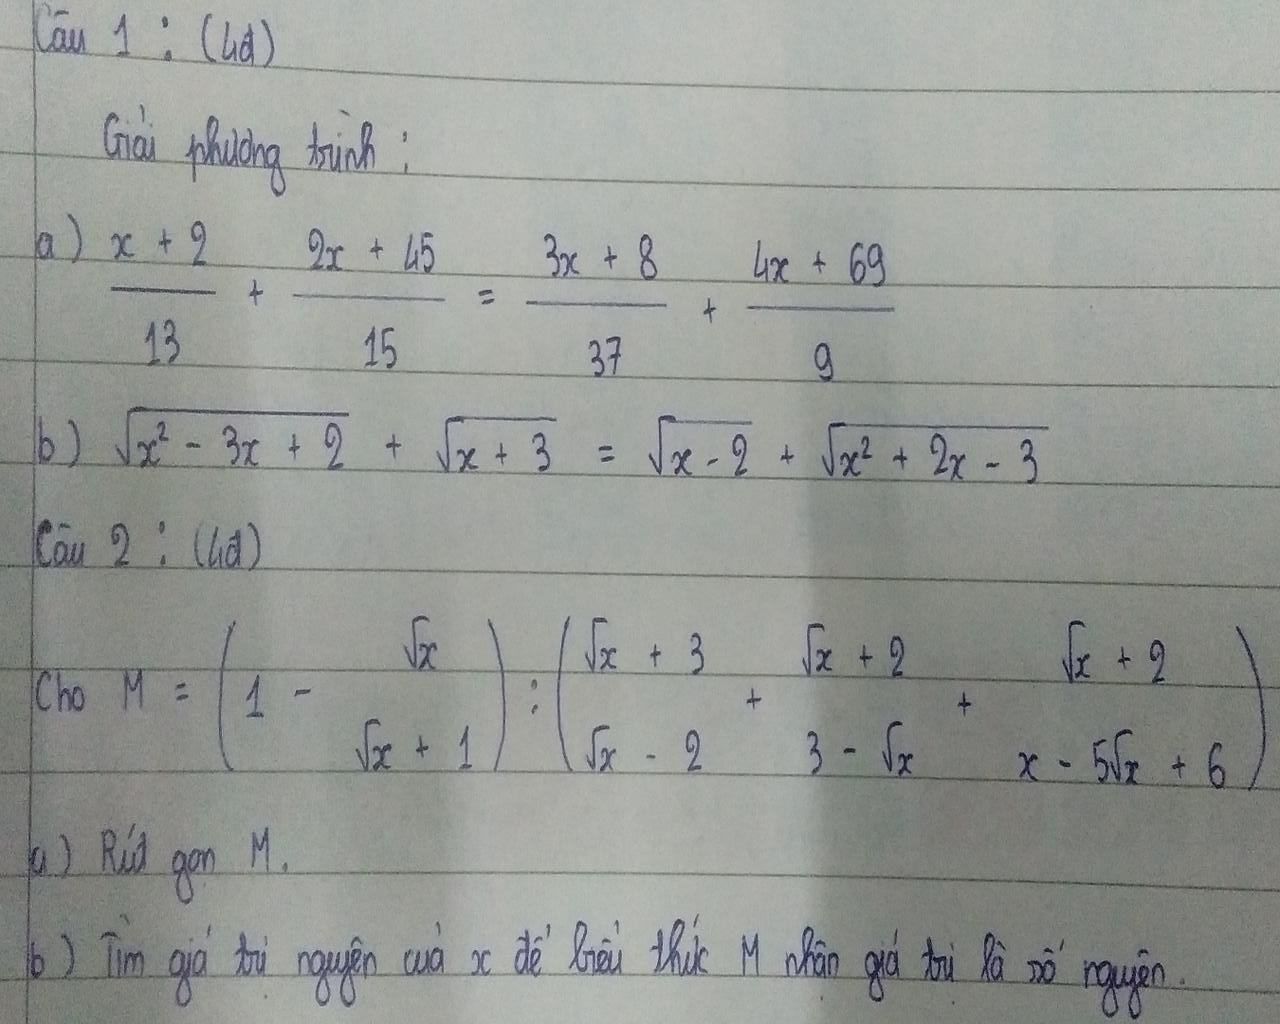 Câu 1 : (4đ)
Giải phương trình :
a) (x + 2)/13 + (2x + 45)/15 = (3x + 8)/37 + (4x + 69)/9
b) √(x² - 3x + 2) + √(x + 3) = √(x - 2) + √(x² + 2x - 3)
Câu 2 : (4đ)
Cho M = (1 - √x/(√x + 1)) : ((√x + 3)/(√x - 2) + (√x + 2)/(3 - √x) + (√x + 2)/(x - 5√x + 6))
a) Rút gọn M.
b) Tìm giá trị nguyên của x để biểu thức M nhận giá trị là số nguyên.